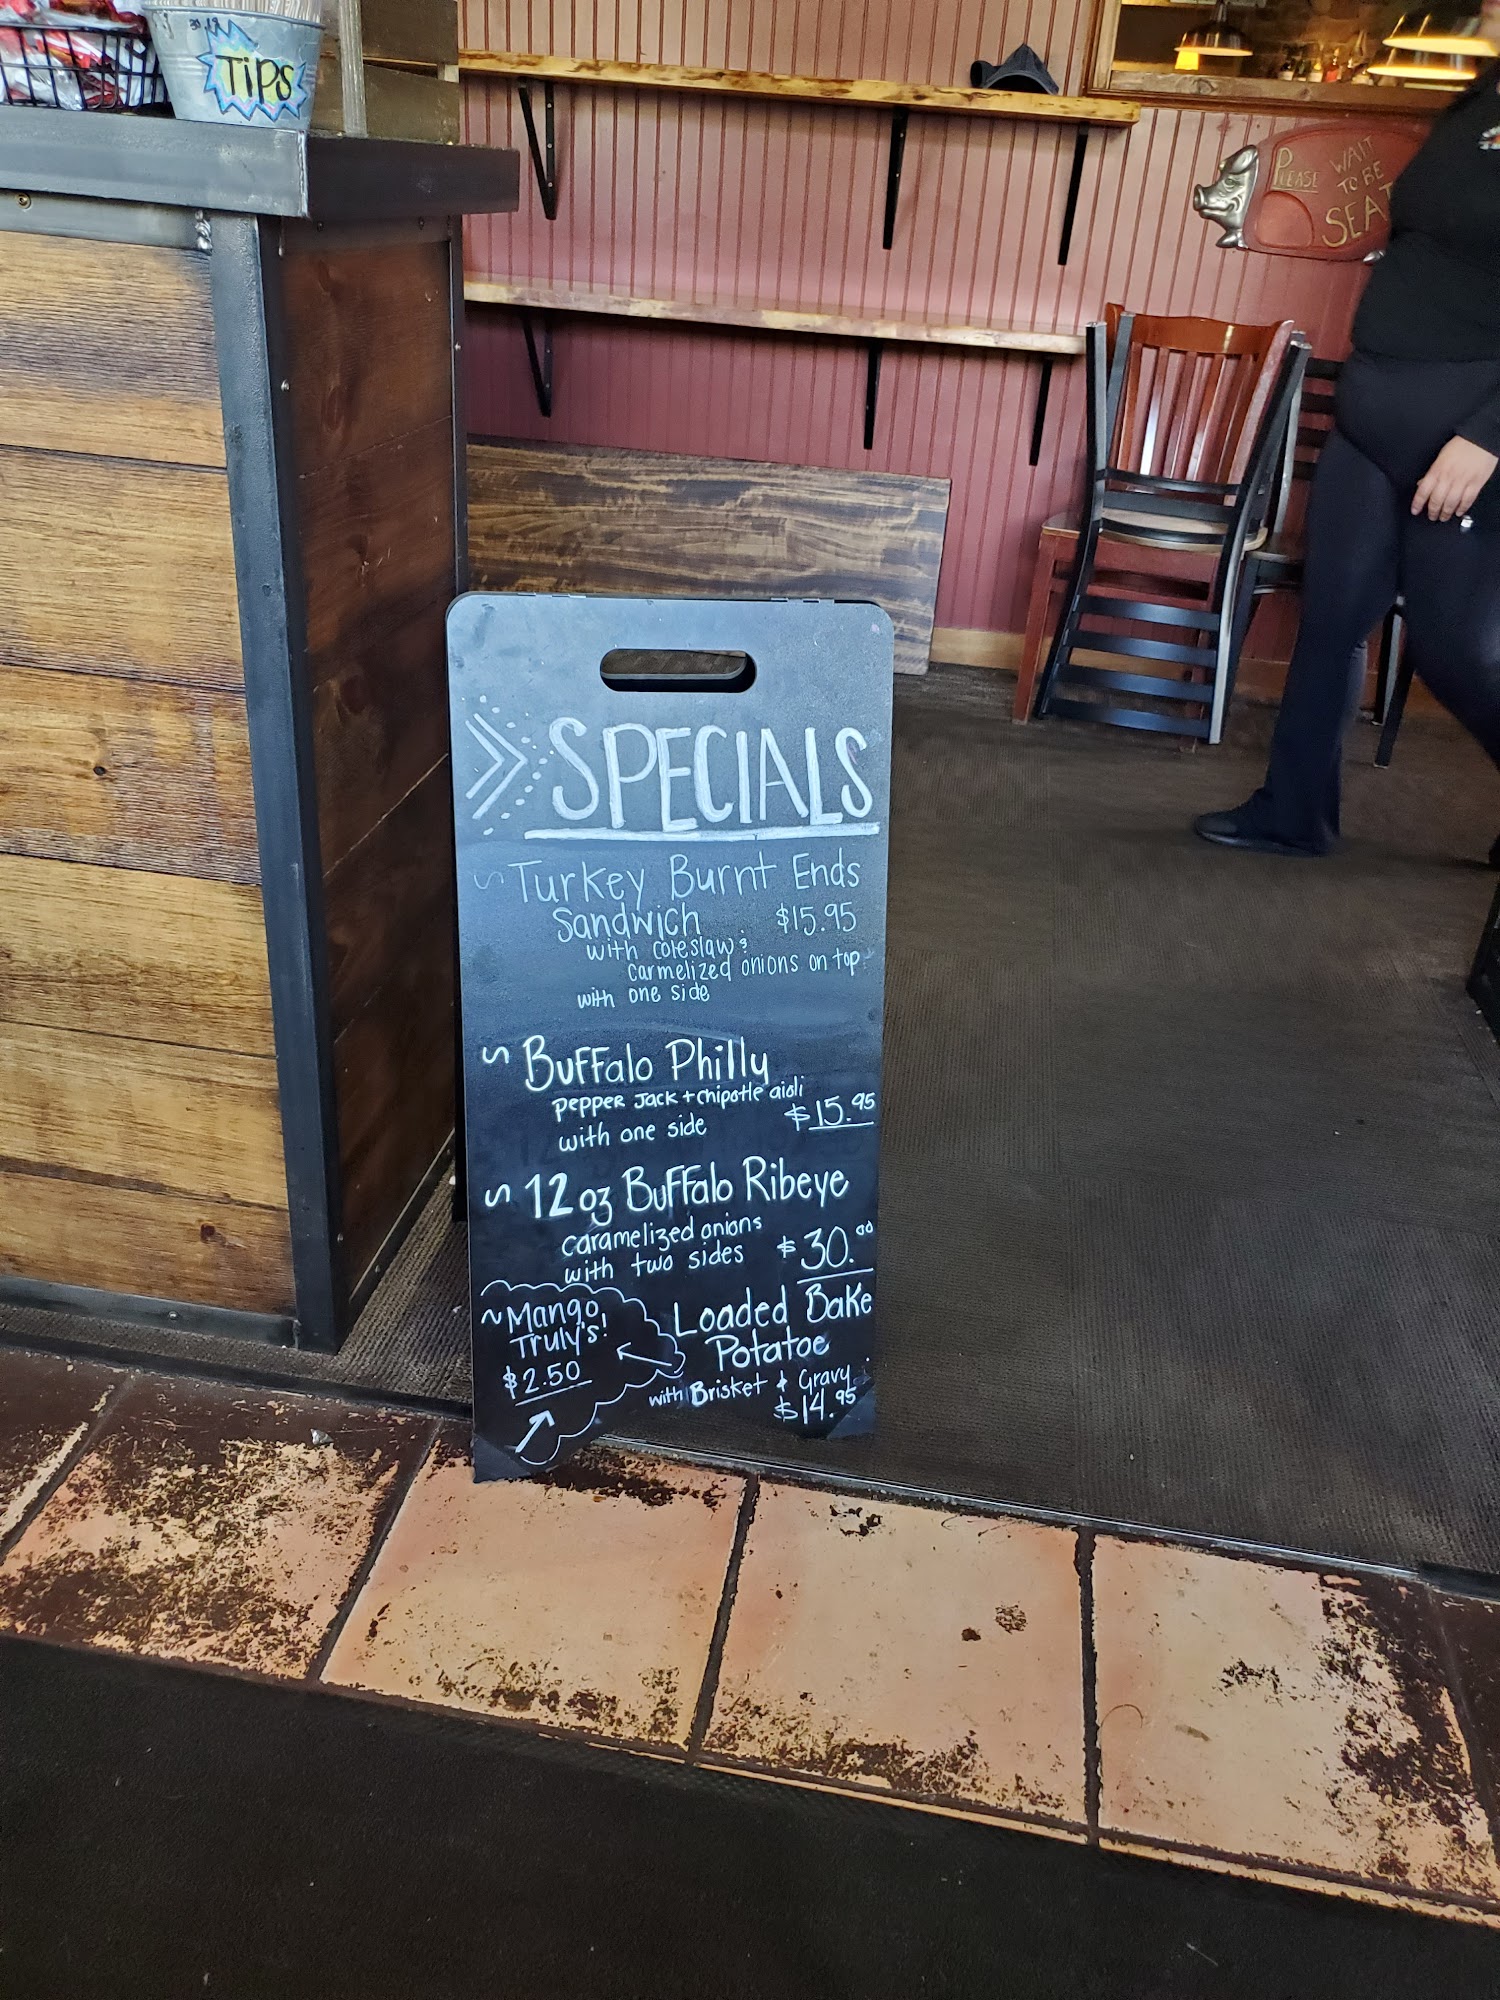 TiPS
PLEASE WAIT
TO BE
SEAT
SPECIALS
Turkey Burnt Ends
Sandwich $15.95
with coleslaw &
carmelized onions on top
with one side
Buffalo Philly
pepper Jack + chipotle aioli
$15.95
with one side
12oz Buffalo Ribeye
caramelized onions
with two sides $30.00
~Mango
Truly's!
$2.50
Loaded Bake
Potatoe
with Brisket & Gravy
$14.95